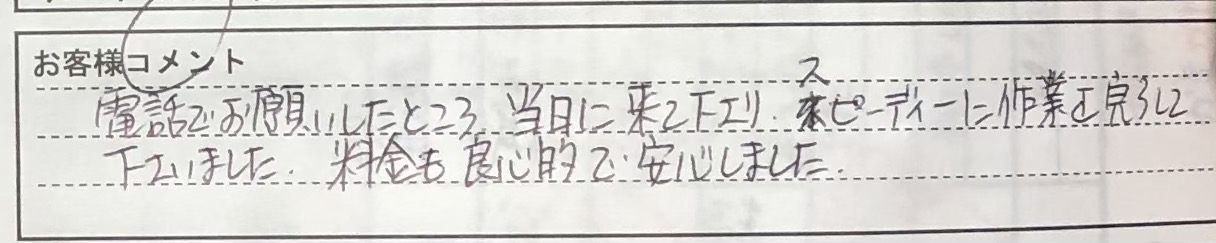 お客様コメント
電話でお願いしたところ、当日に来て下さり、スピーディーに作業を完了して
下さいました。料金も良心的で安心しました。